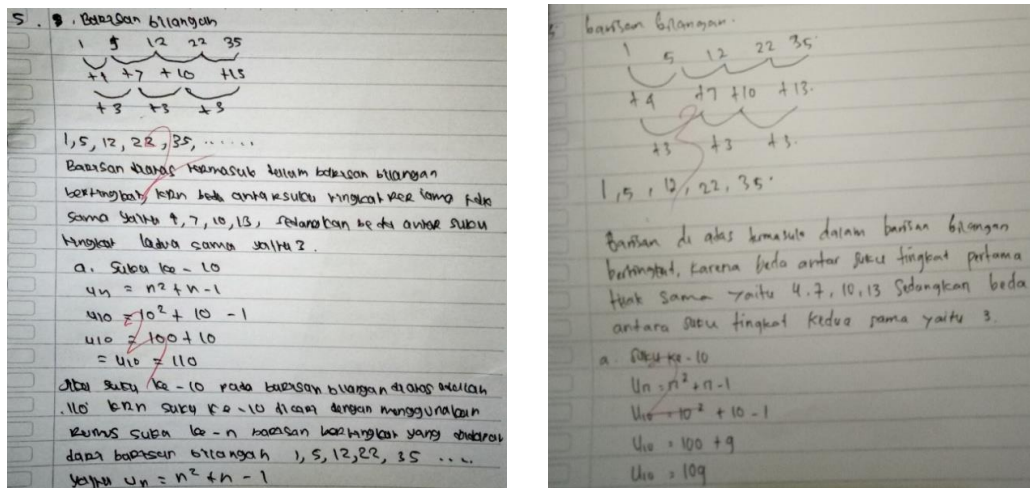 5. Barisan bilangan
1 5 12 22 35
+4 +7 +10 +13
+3 +3 +3
1, 5, 12, 22, 35, ......
Barisan diatas termasuk dalam barisan bilangan
bertingkat, krn beda antar suku tingkat pertama tidak
sama yaitu 4, 7, 10, 13, sedangkan beda antar suku
tingkat kedua sama yaitu 3.
a. Suku ke - 10
un = n² + n - 1
u10 = 10² + 10 - 1
u10 = 100 + 10
= u10 = 110
Jadi suku ke - 10 pada barisan bilangan diatas adalah
110 krn suku ke - 10 dicari dengan menggunakan
rumus suku ke - n barisan bertingkat yang
dari barisan bilangan 1, 5, 12, 22, 35 ....
yaitu un = n² + n - 1
barisan bilangan.
1 5 12 22 35
+4 +7 +10 +13.
+3 +3 +3.
1, 5, 12, 22, 35.
Barisan di atas termasuk dalam barisan bilangan
bertingkat, karena beda antar suku tingkat pertama
tidak sama yaitu 4, 7, 10, 13 Sedangkan beda
antara suku tingkat kedua sama yaitu 3.
a. Suku ke - 10
Un = n² + n - 1
U10 = 10² + 10 - 1
U10 = 100 + 9
U10 = 109